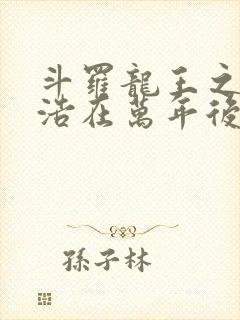 斗羅龍王之
浩在萬年後
孫子林